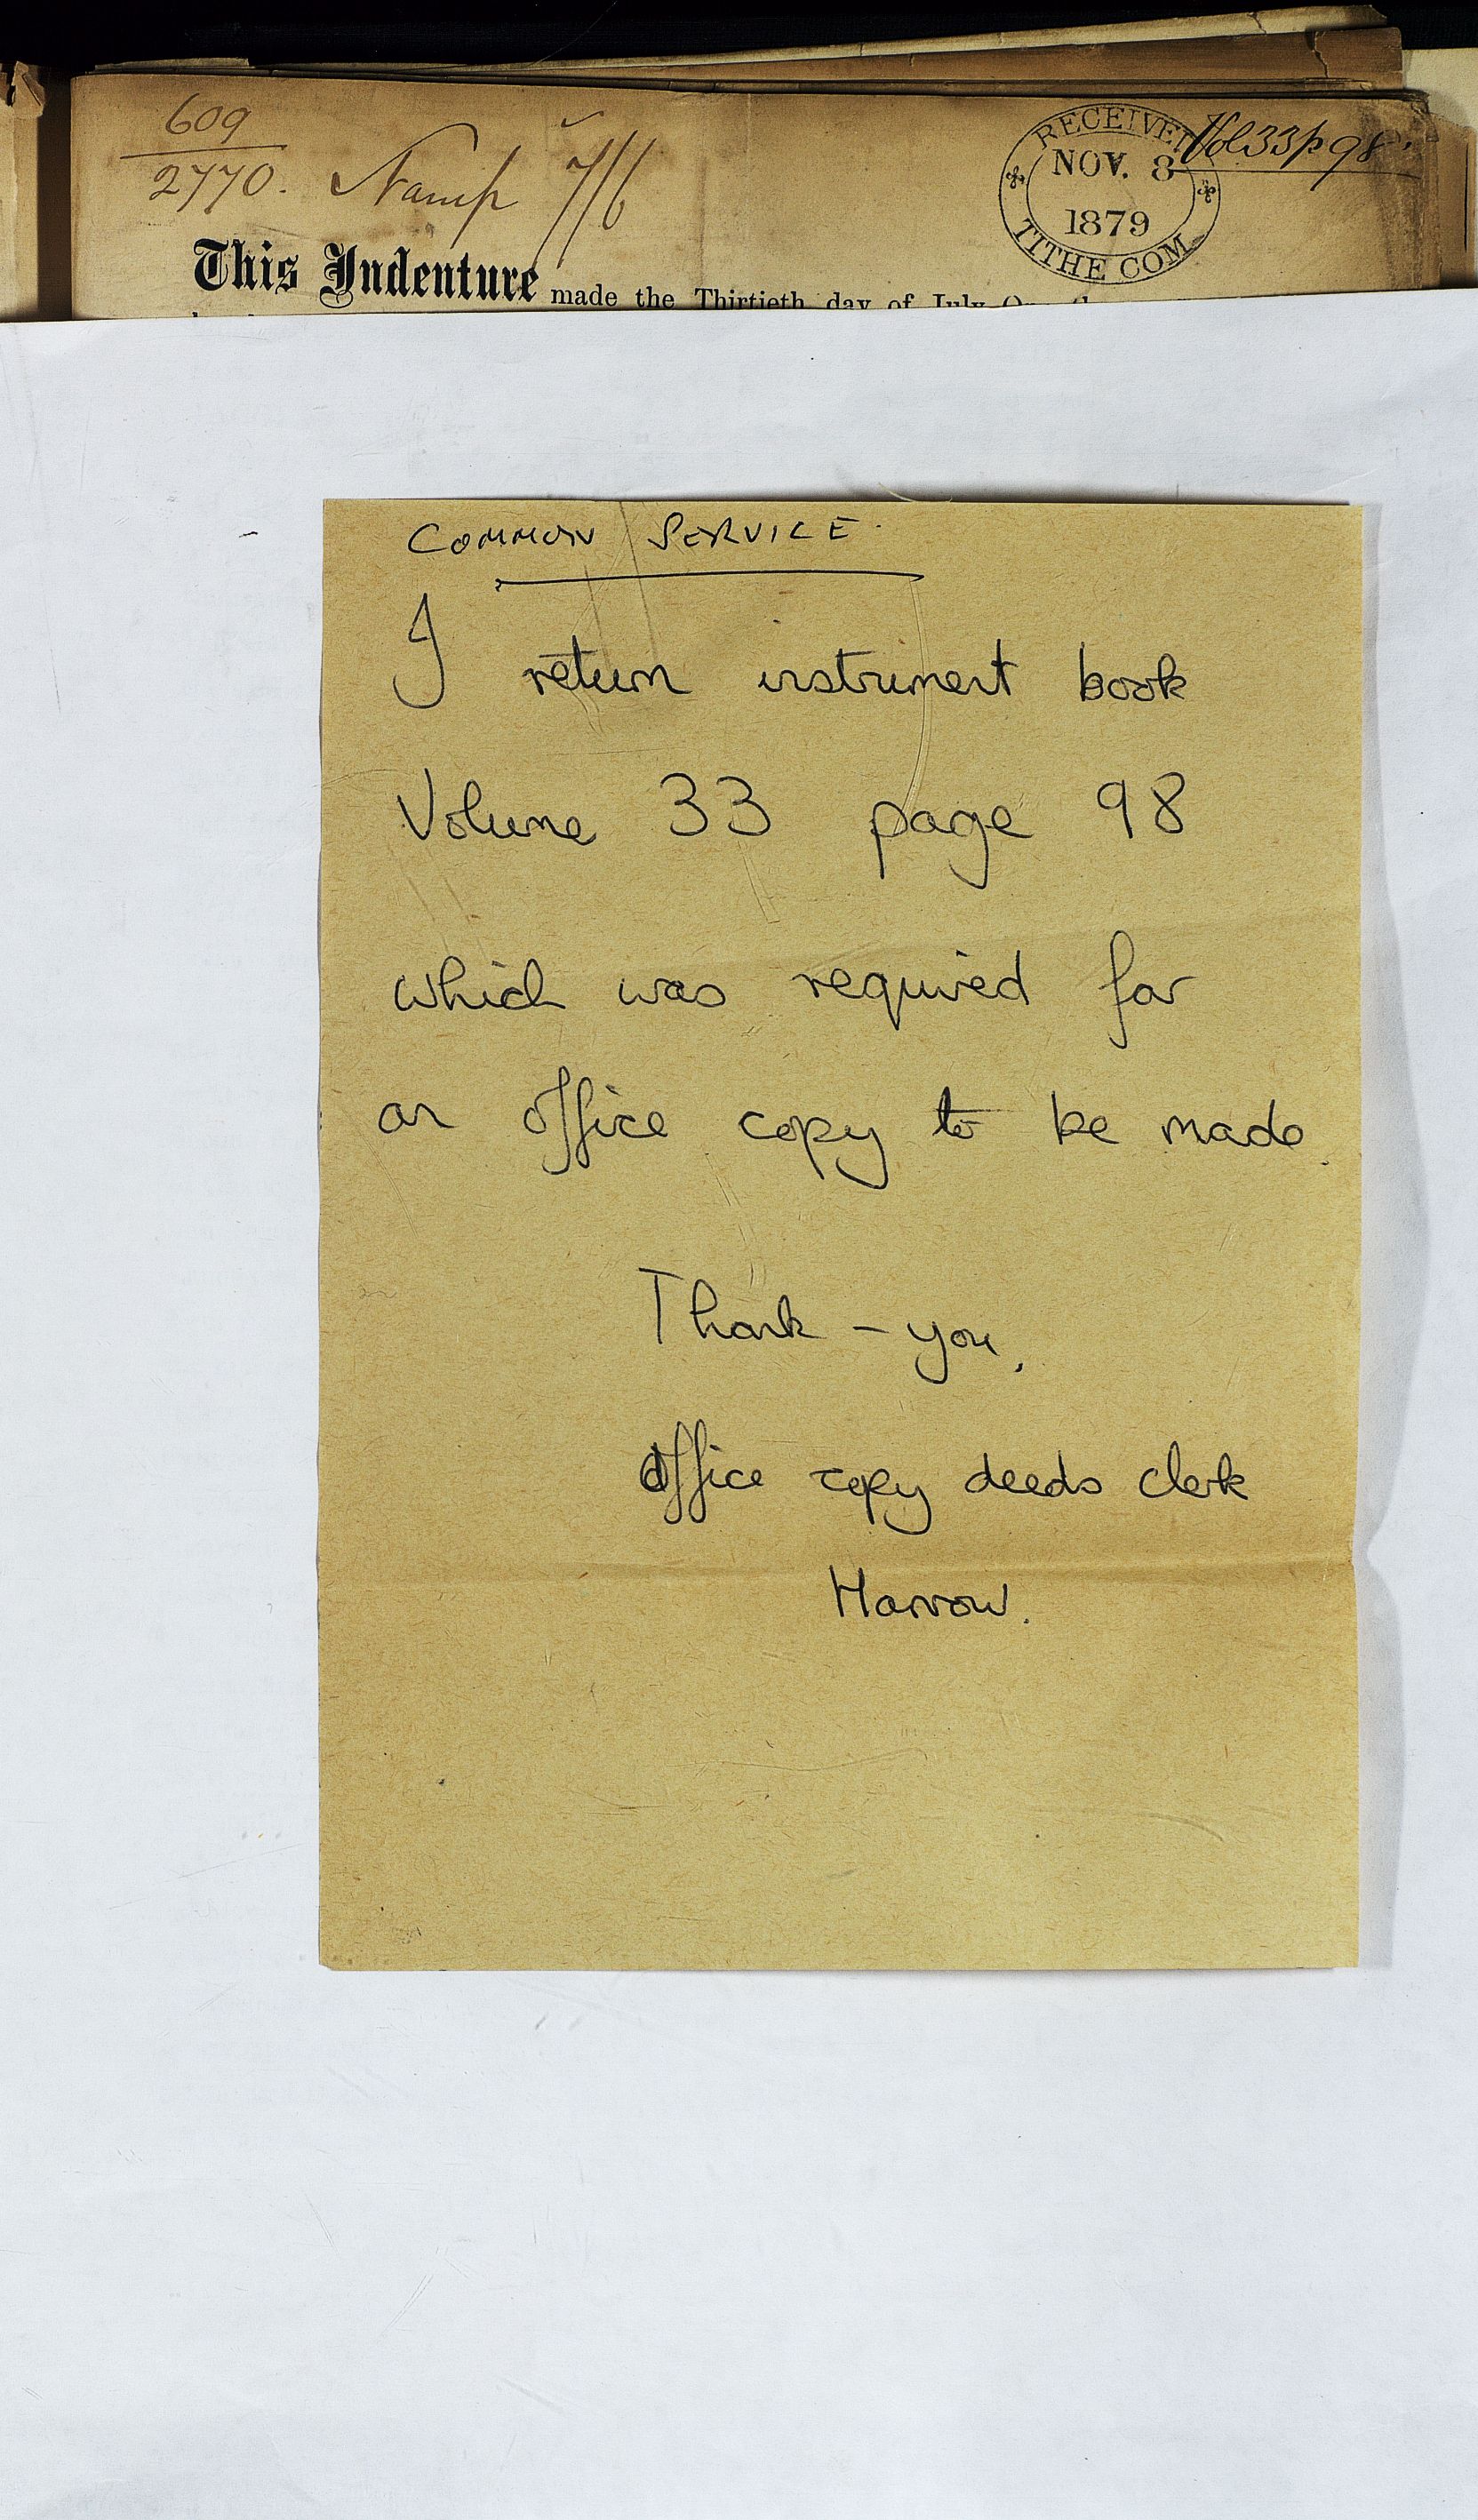 609
2770. Stamp 7/6
RECEIVED
NOV. 8
1879
TITHE COM.
Vol 33 p 98.
This Indenture made the Thirtieth day of July
COMMON SERVICE.
I return instrument book
Volume 33 page 98
which was required for
an office copy to be made.
Thank-you,
Office copy deeds clerk
Harrow.